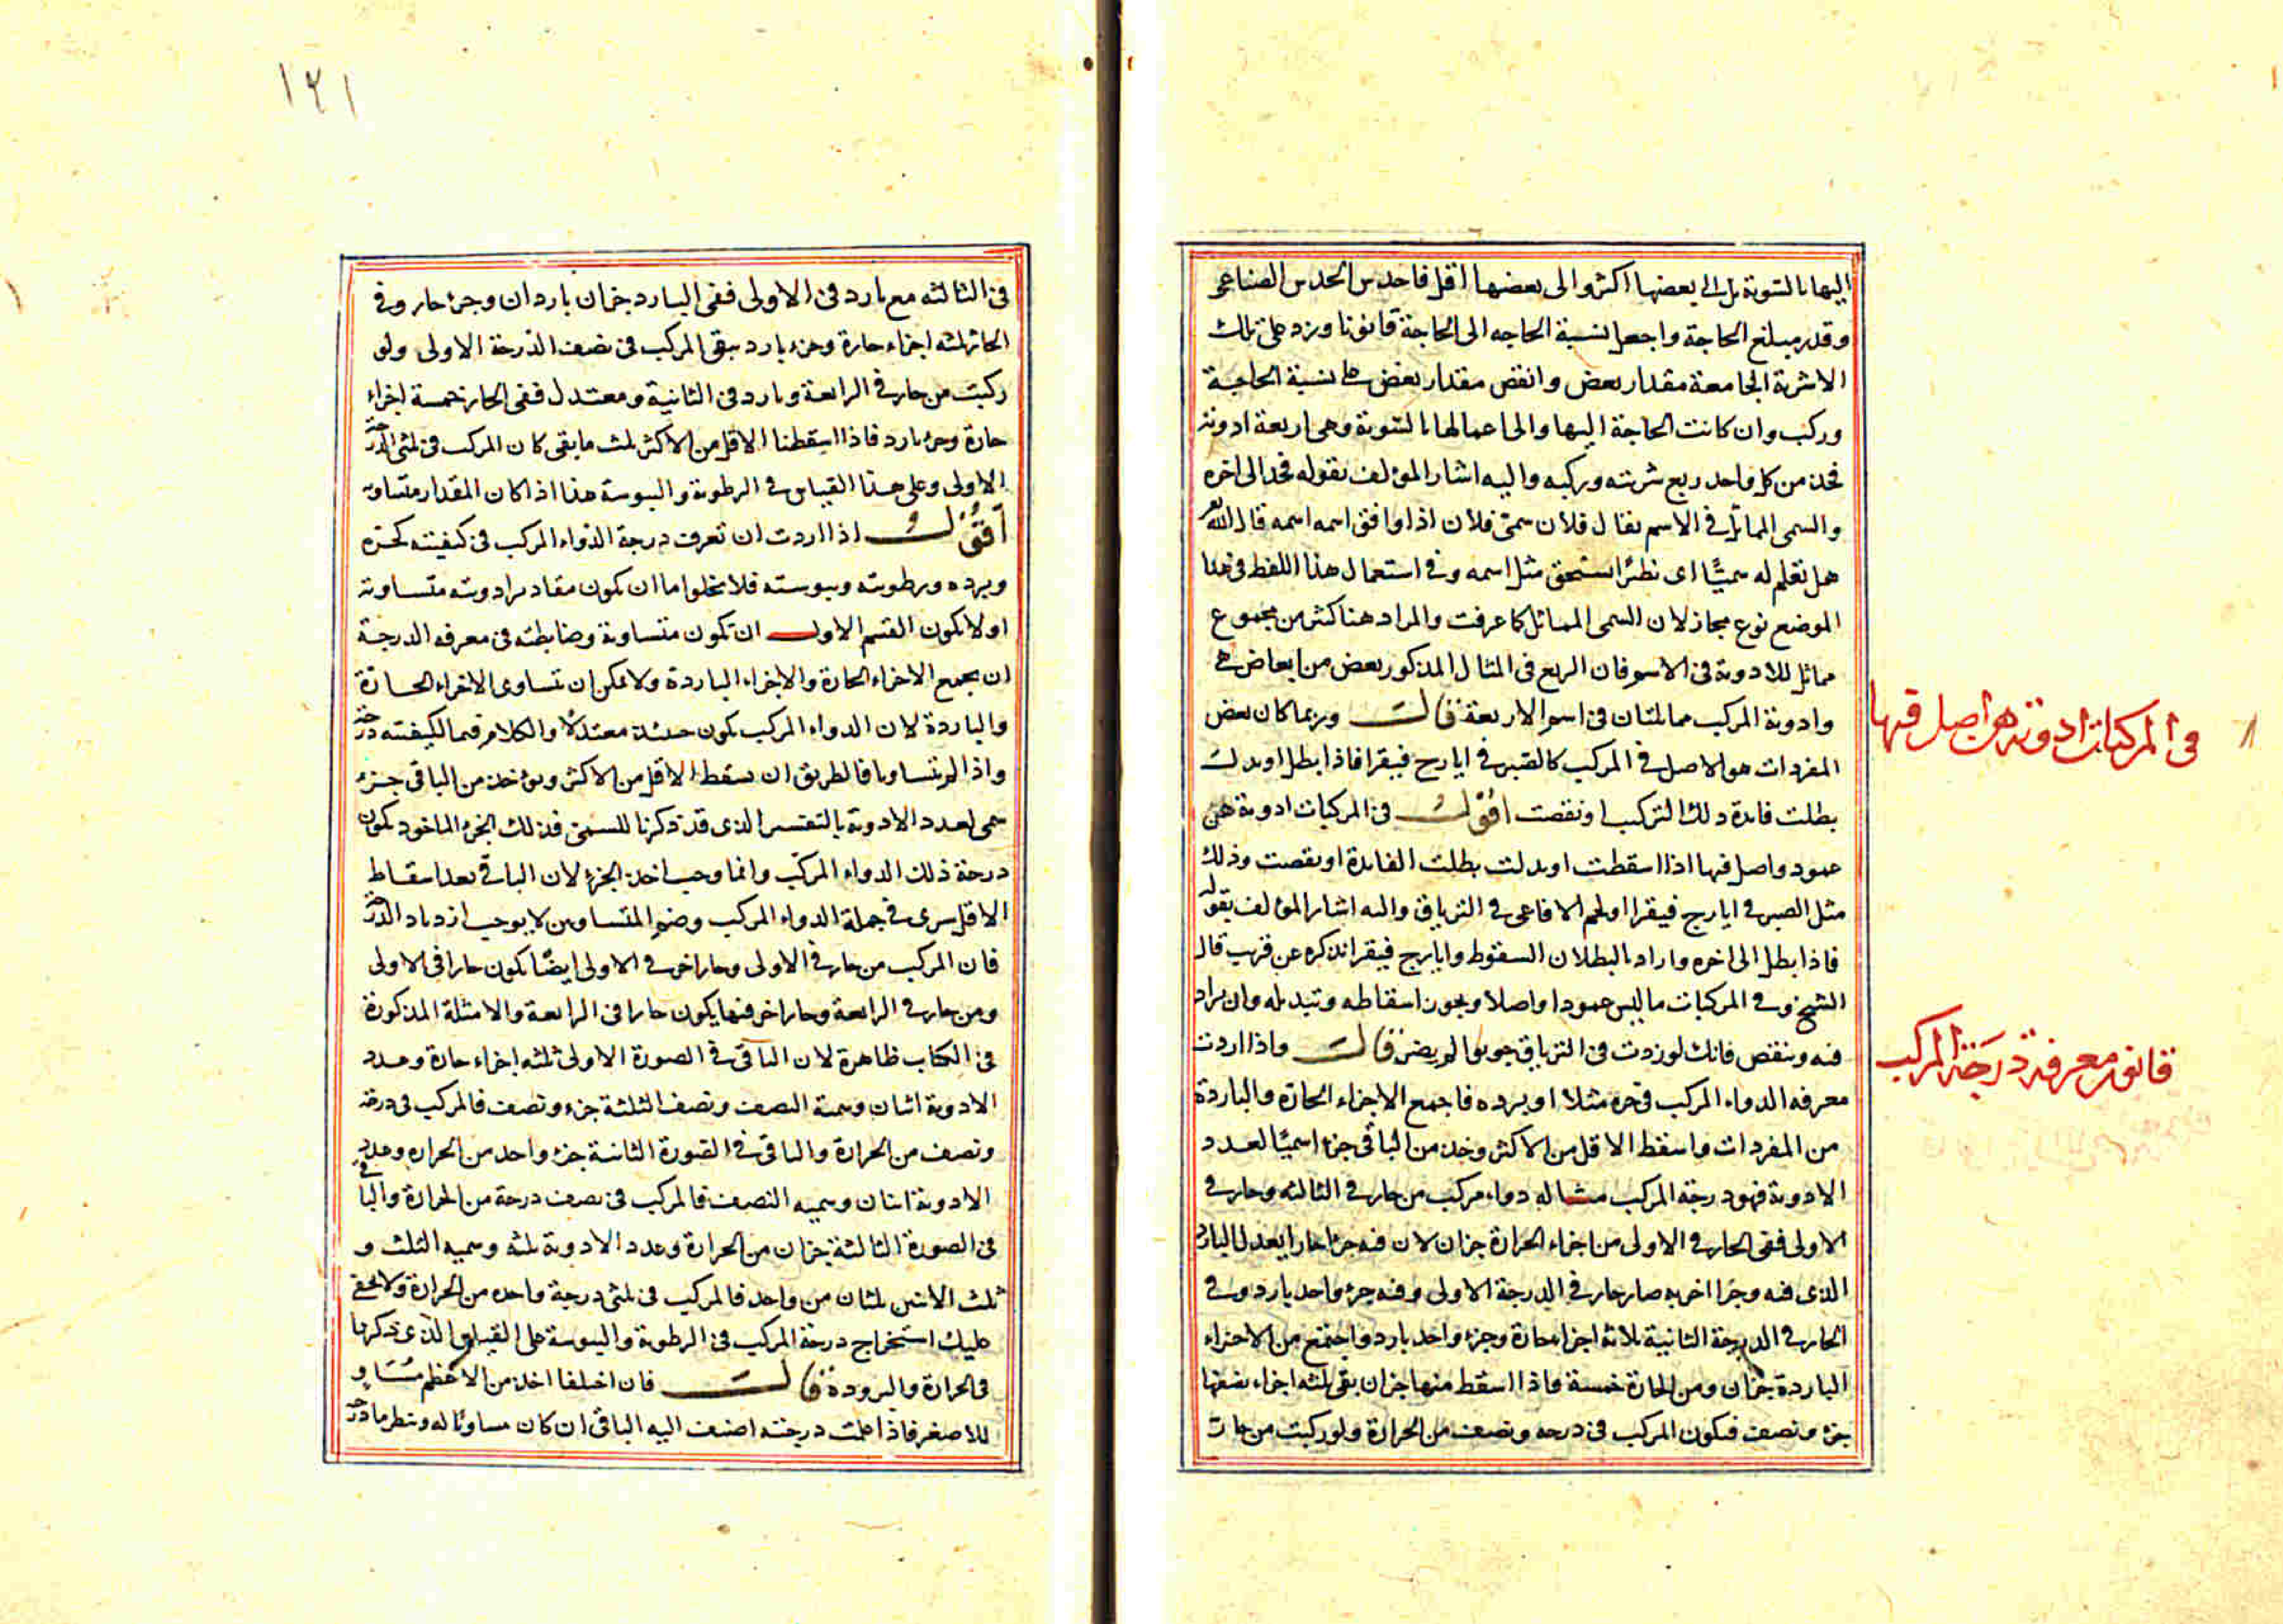 اليها بالسوية بل الى بعضها اكثر والى بعضها اقل فاحدس الحدس الصناعى
وقدر مبلغ الحاجة واجعل نسبة الحاجه الى الحاجة قانونا وزد على تلك
الاشربة الجامعة مقدار بعض وانقص مقدار بعض على نسبة الحاجة
وركب وان كانت الحاجة اليها والى اعمالها بالسوية وهى اربعة ادوية
فخذ من كل واحد ربع شربته وركبه واليه اشار المؤلف بقوله فخذ الى اخره
والسمى المماثل فى الاسم يقال فلان سمىّ فلان اذا وافق اسمه اسمه قال الله تع
هل تعلم له سميًّا اى نظيرًا يستحق مثل اسمه وفى استعمال هذا اللفظ فى هذا
الموضع نوع مجاز لان السمى المماثل كما عرفت والمراد هنا كثر من مجموع
مماثل للادوية فى الاسم فان الربع فى المثال المذكور بعض من ابعاض هى
وادوية المركب مماثلتان فى اسم الاربعة قالــــ وربما كان بعض
المفردات هو الاصل فى المركب كالصبر فى ايارج فيقرا فاذا بطل او بدلت
بطلت فايدة ذلك التركيب او نقصت اقولـــ فى المركبات ادوية هى
عمود واصل فيها اذا اسقطت او بدلت بطلت الفايدة او نقصت وذلك
مثل الصبر فى ايارج فيقرا او لحم الافاعى فى الترياق واليه اشار المؤلف بقوله
فاذا بطل الى اخره واراد بالبطلان السقوط وايارج فيقرا نذكره عن قريب قال
الشيخ وفى المركبات ما ليس عمودا واصلا ويجوز اسقاطه وتبديله وان يزاد
فيه وينقص فانك لو زدت فى الترياق جوبوا لم يضر قالـــ واذا اردت
معرفه الدواء المركب فى حره مثلا او برده فاجمع الاجزاء الحارة والباردة
من المفردات واسقط الاقل من الاكثر وخذ من الباقى جزءا سميًّا لعدد
الادوية فهو درجة المركب مثاله دواء مركب من حار فى الثالثه وحار فى
الاولى ففى الحار فى الاولى من اجزاء الحرارة جزان لان فيه جزءا حارا يعدل البارد
الذى فيه وجزءا اخر به صار حار فى الدرجة الاولى وفيه جزء واحد بارد وفى
الحار فى الدرجة الثانية ثلاثة اجزاء حارة وجزء واحد بارد واجتمع من الاجزاء
الباردة جزان ومن الحارة خمسة فاذا اسقط منها جزان بقى ثلثه اجزاء نصفها
جزء ونصف فيكون المركب فى درجه ونصف من الحرارة ولو ركبت من حار
فى المركبات ادوية هى اصل فيها
قانون معرفة درجة المركب
١٢١
فى الثالثه مع بارد فى الاولى ففى البارد جزان باردان وجزء حار وفى
الحار ثلثه اجزاء حارة وجزء بارد يبقى المركب فى نصف الدرجة الاولى ولو
ركبت من حار فى الرابعة وبارد فى الثانية ومعتدل ففى الحار خمسة اجزاء
حارة وجزء بارد فاذا اسقطنا الاقل من الاكثر ثلث ما بقى كان المركب فى ثلثى الدرجة
الاولى وعلى هذا القياس فى الرطوبة واليبوسة هذا اذا كان المقدار متساويه
اقولـــ اذا اردت ان تعرف درجة الدواء المركب فى كيفيته كحره
وبرده ورطوبته ويبوسته فلا يخلوا ما ان يكون مقادير ادويته متساوية
او لا يكون القسم الاولـــ ان تكون متساوية وضابطه فى معرفه الدرجة
ان يجمع الاجزاء الحارة والاجزاء الباردة ولا يمكن ان تتساوى الاجزاء الحارة
والباردة لان الدواء المركب يكون حينئذ معتدلًا والكلام فيما لكيفيته درجة
واذا لم تتساويا فالطريق ان يسقط الاقل من الاكثر ويؤخذ من الباقى جزء
سمى لعدد الادوية بالتفسير الذى قد ذكرنا للسمى فذلك الجزء الماخوذ يكون
درجة ذلك الدواء المركّب وانما وجب اخذ الجزء لان الباقى بعد اسقاط
الاقل سرى فى جملة الدواء المركب وضم المتساويين لا يوجب ازدياد الدرجة
فان المركب من حار فى الاولى وحار اخر فى الاولى ايضًا يكون حارا فى الاولى
ومن حار فى الرابعة وحار اخر فيها يكون حارا فى الرابعة والامثلة المذكورة
فى الكتاب ظاهرة لان الباقى فى الصورة الاولى ثلثه اجزاء حارة وعدد
الادوية اثنان وسميه النصف ونصف الثلثة جزء ونصف فالمركب فى درجة
ونصف من الحرارة والباقى فى الصورة الثانية جزء واحد من الحراره وعدد
الادوية اثنان وسميه النصف فالمركب فى نصف درجة من الحرارة والباقى
فى الصورة الثالثة جزان من الحرارة وعدد الادوية ثلثه وسميه الثلث و
ثلث الاثنين ثلثان من واحد فالمركب فى ثلثى درجة واحده من الحرارة ولا يخفى
عليك استخراج درجة المركب فى الرطوبة واليبوسة على القياس الذى ذكرنا
فى الحرارة والبرودة قالـــ فان اختلفا اخذ من الاعظم مساوٍ
للاصغر فاذا علمت درجته اضف اليه الباقى ان كان مساويًا له وينظر ما درجة